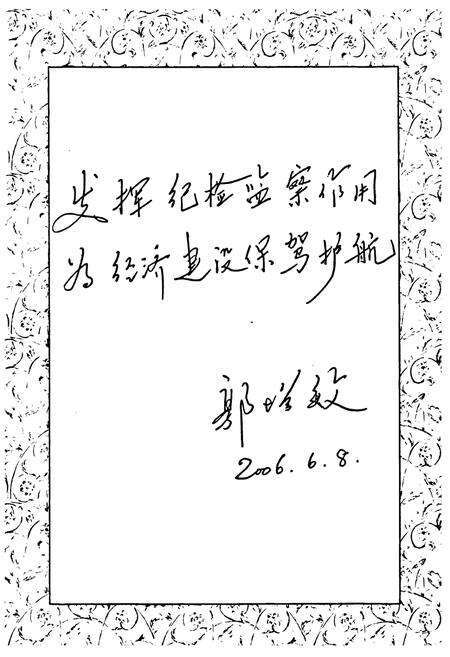 发挥纪检监察作用
为经济建设保驾护航
郭培敏
2006.6.8.